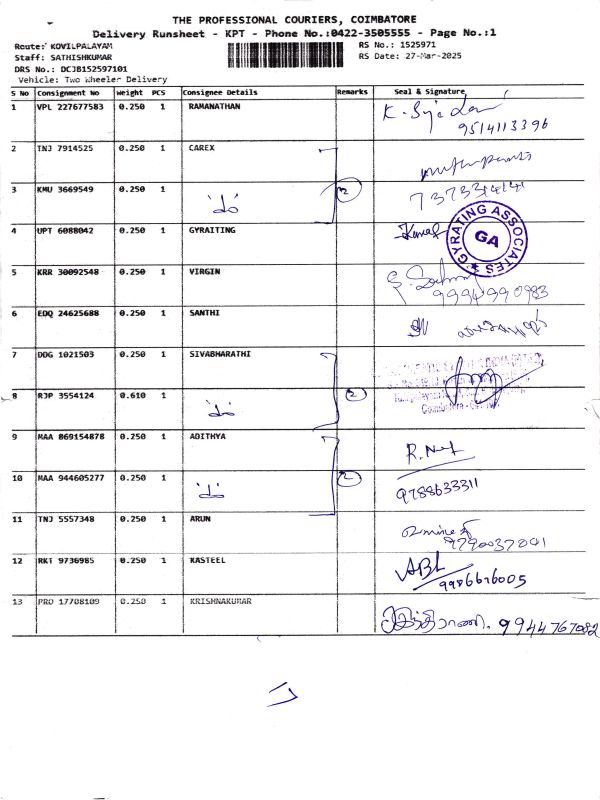 THE PROFESSIONAL COURIERS, COIMBATORE
Delivery Runsheet - KPT - Phone No.:0422-3505555 - Page No.:1
Route: KOVILPALAYAM
RS No.: 1525971
Staff: SATHISHKUMAR
RS Date: 27-Mar-2025
DRS No.: DCJB152597101
Vehicle: Two Wheeler Delivery
S No Consignment No Weight PCS Consignee Details Remarks Seal & Signature
1 VPL 227677583 0.250 1 RAMANATHAN
9514113396
2 TNJ 7914525 0.250 1 CAREX
3 KMU 3669549 0.250 1 2
4 UPT 6088042 0.250 1 GYRAITING
GYRATING ASSOCIATES
GA
5 KRR 30092548 0.250 1 VIRGIN
9994990983
6 EDQ 24625688 0.250 1 SANTHI
7 DDG 1021503 0.250 1 SIVABHARATHI
8 RJP 3554124 0.610 1 2
9 MAA 869154878 0.250 1 ADITHYA
10 MAA 944605277 0.250 1 2 9788633311
11 TNJ 5557348 0.250 1 ARUN
12 RKT 9736985 0.250 1 KASTEEL ABL
9986676005
13 PRO 17708109 0.250 1 KRISHNAKUMAR
9944767082